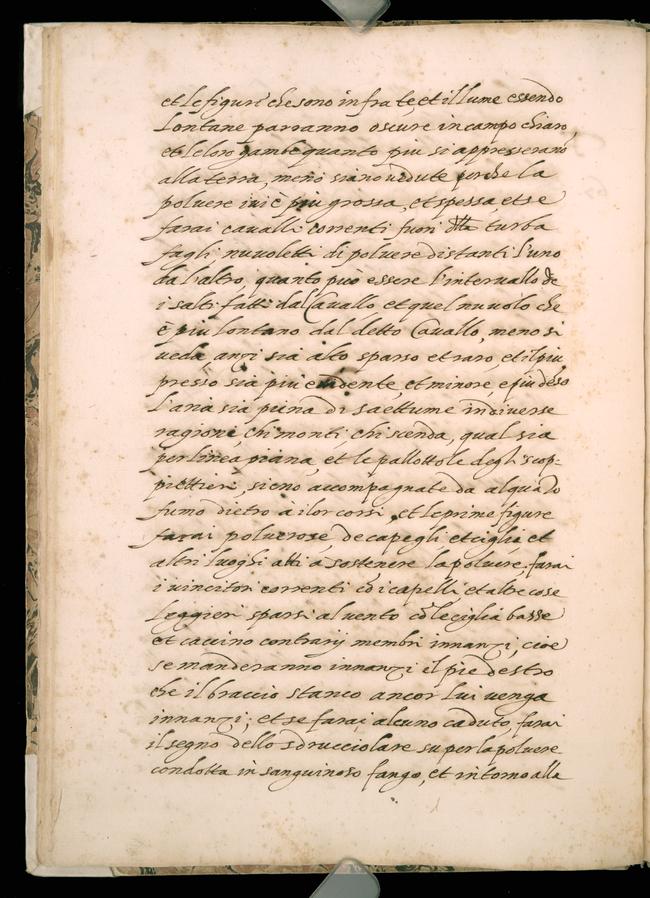 et le figure che sono infra te, et il lume essendo
Lontane parranno oscure in campo chiaro,
et le loro gambe quanto piu si appresserano
alla terra, meno siano vedute perche la
poluere iui è piu grossa, et spessa et se
farai caualli correnti fuori dlla turba
fagli nuuoletti di poluere distanti l'uno
da l'altro, quanto può essere l'interuallo de
i salti fatti dal Cauallo et quel nuuolo che
è piu lontano dal detto Cauallo, meno si
veda, anzi sia alto sparso et raro, et il piu
presso sia piu euidente, et minore, e piu deso
l'aria sia piena di saettume in diuerse
ragione, chi monti, chi scenda, qual sia
per linea piana, et le pallottole degli scop=
piettieri, sieno accompagnate da alquato
fumo dietro a i lor corsi, et le prime figure
farai poluerose, de capegli et ciglia, et
altri luoghi atti à sostenere la poluere, farai
i vincitori correnti cō i capelli et altre cose
Leggieri sparsi al vento cō le ciglia basse
et caccino contrarij membri innanzi, cioe
se manderanno innanzi il pie destro
che il braccio stanco ancor lui venga
innanzi; et se farai alcuno caduto, farai
il segno dello sdrucciolare su per la poluere
condotta in sanguinoso fango, et intorno alla